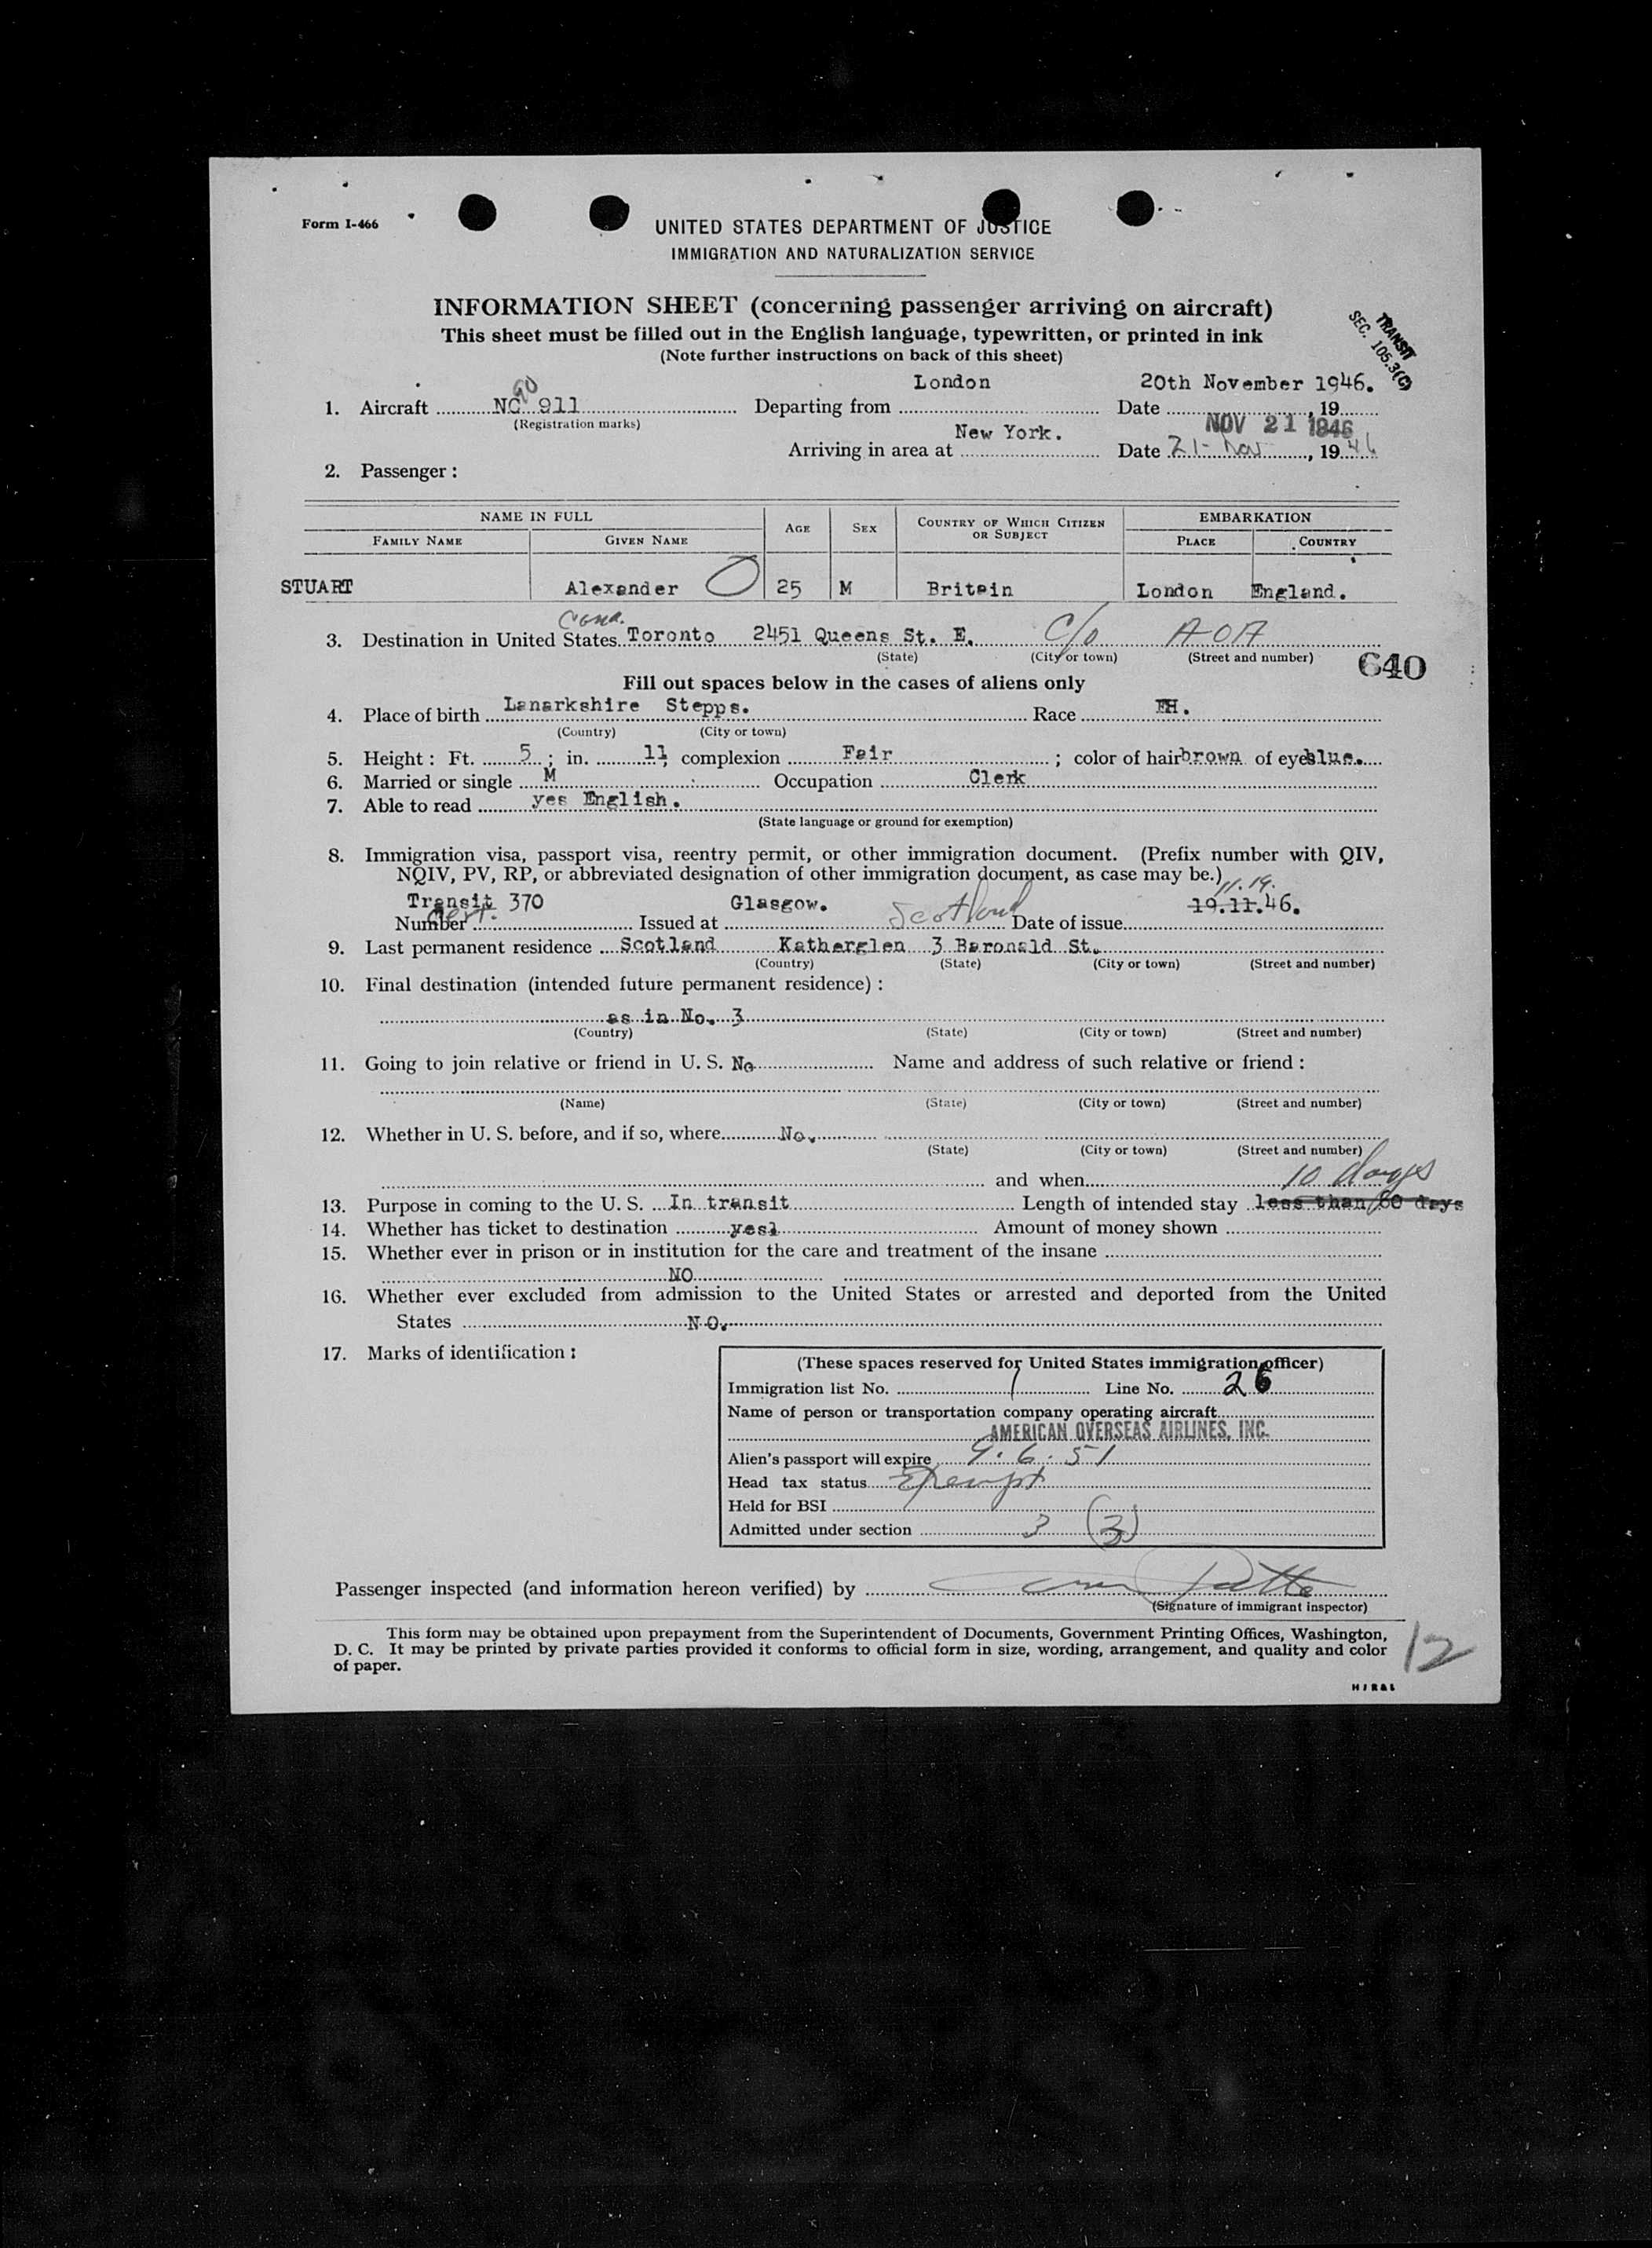 Form I-466
UNITED STATES DEPARTMENT OF JUSTICE
IMMIGRATION AND NATURALIZATION SERVICE
INFORMATION SHEET (concerning passenger arriving on aircraft)
This sheet must be filled out in the English language, typewritten, or printed in ink
(Note further instructions on back of this sheet)
TRANSIT
SEC. 105.3(C)
London 20th November 1946.
90
1. Aircraft NC 911 Departing from Date , 19
(Registration marks)
NOV 21 1946
New York.
Arriving in area at Date 21- Nov , 19 46
2. Passenger :
NAME IN FULL AGE SEX COUNTRY OF WHICH CITIZEN OR SUBJECT EMBARKATION
FAMILY NAME GIVEN NAME PLACE COUNTRY
STUART Alexander 25 M Britain London England.
Cana.
3. Destination in United States Toronto 2451 Queens St. E. C/o AOA
(State) (City or town) (Street and number)
640
Fill out spaces below in the cases of aliens only
4. Place of birth Lanarkshire Stepps. Race .
(Country) (City or town)
5. Height : Ft. 5 ; in. 11; complexion Fair ; color of hair brown of eyes blue.
6. Married or single M Occupation Clerk
7. Able to read yes English.
(State language or ground for exemption)
8. Immigration visa, passport visa, reentry permit, or other immigration document. (Prefix number with QIV,
NQIV, PV, RP, or abbreviated designation of other immigration document, as case may be.)
11.19.
Transit 370 Glasgow. Scotland 19.11.46.
Cert.
Number Issued at Date of issue
9. Last permanent residence Scotland Katherglen 3 Baronald St.
(Country) (State) (City or town) (Street and number)
10. Final destination (intended future permanent residence) :
as in No. 3
(Country) (State) (City or town) (Street and number)
11. Going to join relative or friend in U. S. No Name and address of such relative or friend :
(Name) (State) (City or town) (Street and number)
12. Whether in U. S. before, and if so, where No.
(State) (City or town) (Street and number)
and when
10 days
13. Purpose in coming to the U. S. In transit Length of intended stay less than 60 days
14. Whether has ticket to destination yes1 Amount of money shown
15. Whether ever in prison or in institution for the care and treatment of the insane
NO
16. Whether ever excluded from admission to the United States or arrested and deported from the United
States NO.
17. Marks of identification :
(These spaces reserved for United States immigration officer)
Immigration list No. 1 Line No. 26
Name of person or transportation company operating aircraft
AMERICAN OVERSEAS AIRLINES, INC.
Alien's passport will expire 9. 6. 51
Head tax status Exempt
Held for BSI
Admitted under section 3 (3)
Passenger inspected (and information hereon verified) by
(Signature of immigrant inspector)
This form may be obtained upon prepayment from the Superintendent of Documents, Government Printing Offices, Washington,
D. C. It may be printed by private parties provided it conforms to official form in size, wording, arrangement, and quality and color
of paper.
12